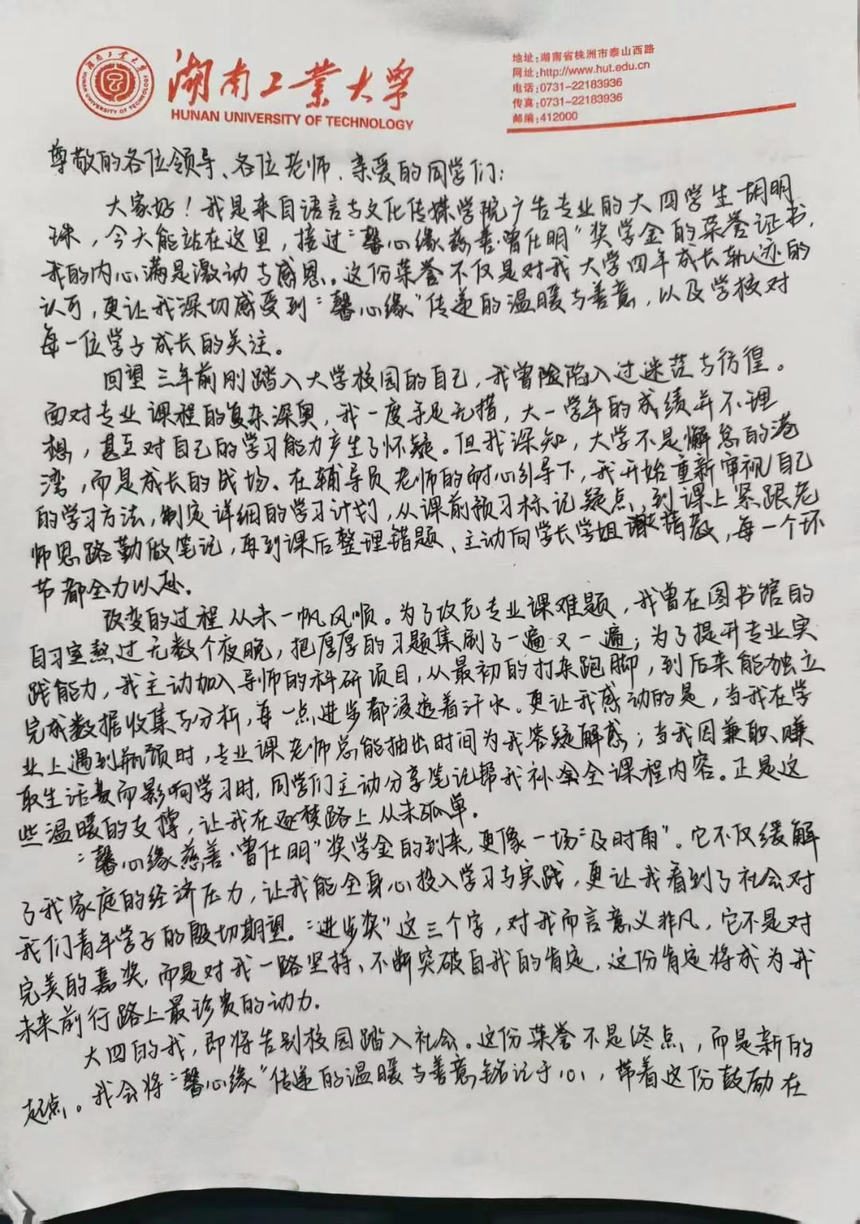 湖南工业大学
HUNAN UNIVERSITY OF TECHNOLOGY
地址:湖南省株洲市泰山西路
网址:http://www.hut.edu.cn
电话:0731-22183936
传真:0731-22183936
邮编:412000
尊敬的各位领导、各位老师、亲爱的同学们:
大家好!我是来自语言与文化传媒学院广告专业的大四学生胡明
珠,今天能站在这里,接过“馨心缘慈善·曾仕明”奖学金的荣誉证书,
我的内心满是激动与感恩。这份荣誉不仅是对我大学四年成长轨迹的
认可,更让我深切感受到“馨心缘”传递的温暖与善意,以及学校对
每一位学子成长的关注。
回望三年前刚踏入大学校园的自己,我曾陷入过迷茫与彷徨。
面对专业课程的复杂深奥,我一度手足无措,大一学年的成绩并不理
想,甚至对自己的学习能力产生了怀疑。但我深知,大学不是懈怠的港
湾,而是成长的战场。在辅导员老师的耐心引导下,我开始重新审视自己
的学习方法,制定详细的学习计划,从课前预习标记疑点,到课上紧跟老
师思路勤做笔记,再到课后整理错题、主动向学长学姐请教,每一个环
节都全力以赴。
改变的过程从未一帆风顺。为了攻克专业课难题,我曾在图书馆的
自习室熬过无数个夜晚,把厚厚的习题集刷了一遍又一遍;为了提升专业实
践能力,我主动加入导师的科研项目,从最初的打杂跑脚,到后来能独立
完成数据收集与分析,每一点进步都浸透着汗水。更让我感动的是,当我在学
业上遇到瓶颈时,专业课老师总能抽出时间为我答疑解惑;当我因兼职、赚
取生活费而影响学习时,同学们主动分享笔记帮我补全课程内容。正是这
些温暖的支撑,让我在逐梦路上从未孤单。
“馨心缘慈善·曾仕明”奖学金的到来,更像一场“及时雨”。它不仅缓解
了我家庭的经济压力,让我能全身心投入学习与实践,更让我看到了社会对
我们青年学子的殷切期望。“进步奖”这三个字,对我而言意义非凡,它不是对
完美的嘉奖,而是对我一路坚持、不断突破自我的肯定,这份肯定将成为我
未来前行路上最珍贵的动力.
大四的我,即将告别校园踏入社会。这份荣誉不是终点,而是新的
起点。我会将“馨心缘”传递的温暖与善意铭记于心,带着这份鼓励在